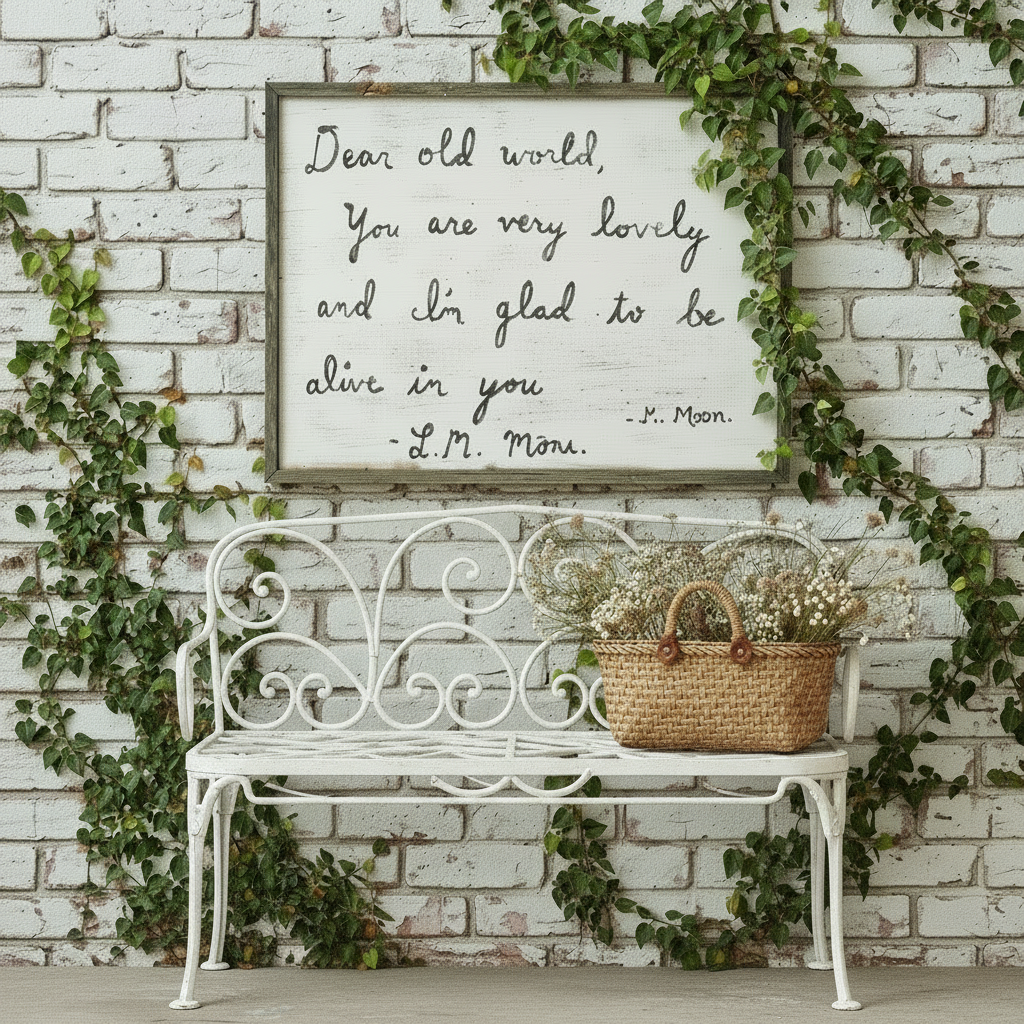 Dear old world,
You are very lovely
and I'm glad to be
alive in you
-L.M. Mom.